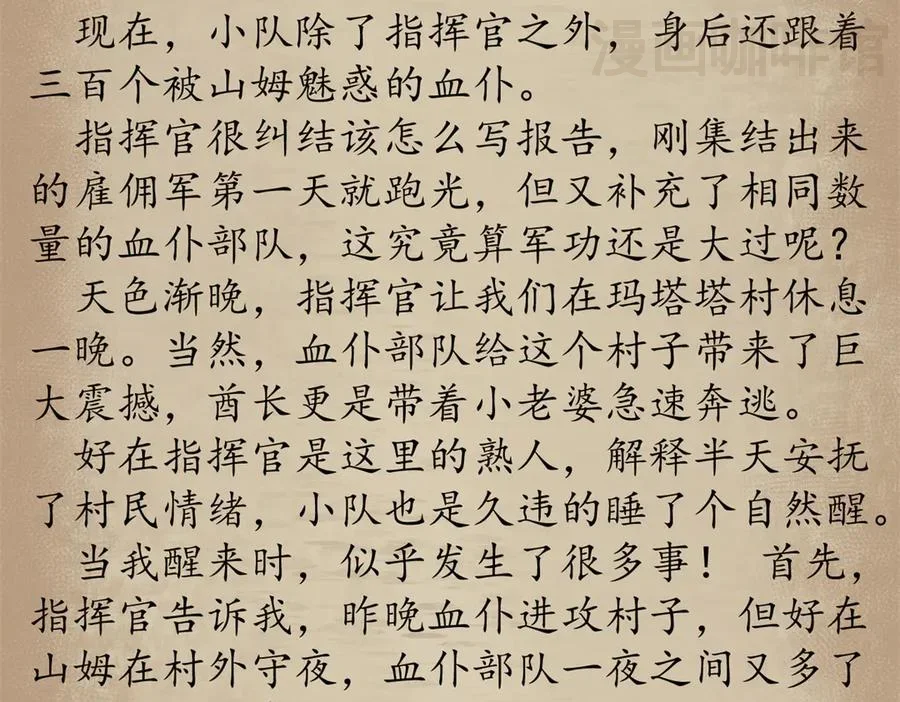 漫画咖啡馆
现在，小队除了指挥官之外，身后还跟着
三百个被山姆魅惑的血仆。
指挥官很纠结该怎么写报告，刚集结出来
的雇佣军第一天就跑光，但又补充了相同数
量的血仆部队，这究竟算军功还是大过呢？
天色渐晚，指挥官让我们在玛塔塔村休息
一晚。当然，血仆部队给这个村子带来了巨
大震撼，酋长更是带着小老婆急速奔逃。
好在指挥官是这里的熟人，解释半天安抚
了村民情绪，小队也是久违的睡了个自然醒。
当我醒来时，似乎发生了很多事！ 首先，
指挥官告诉我，昨晚血仆进攻村子，但好在
山姆在村外守夜，血仆部队一夜之间又多了